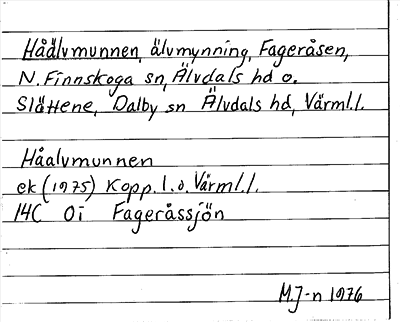 Håälvmunnen, älvmynning, Fageråsen,
N. Finnskoga sn, Älvdals hd o.
Slättene, Dalby sn Älvdals hd, Värml.l.
Håalvmunnen
ek (1975) Kopp.l.o. Värml.l.
14C 0i Fageråssjön
M.J-n 1976